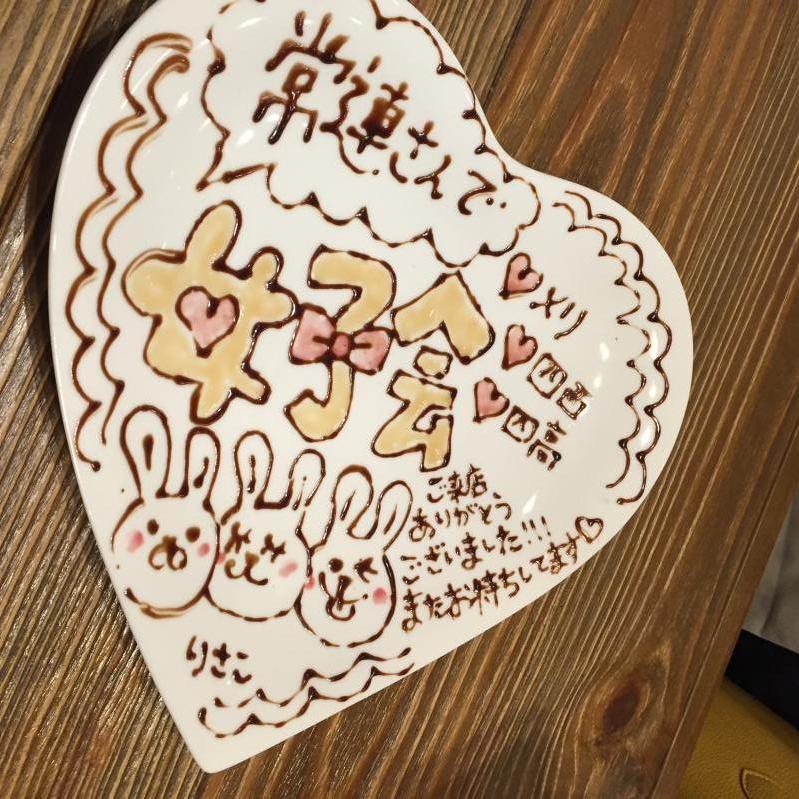 常連さんで
女子会
♡メリ
♡囚西
♡囚高
ご来店
ありがとう
ございました!!!
またお待ちしてます♡
りさこ